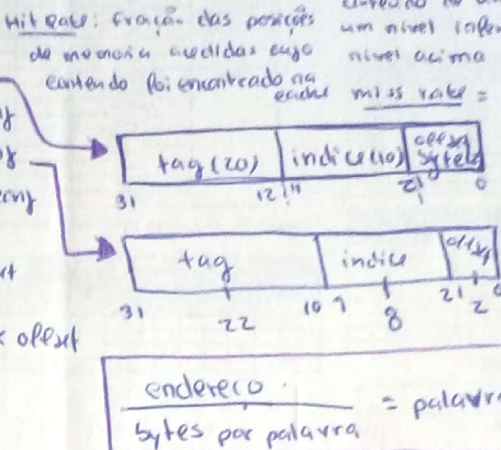 Hit Rate: fração das posições
de memória acedidas cujo
conteúdo foi encontrado na
cache
um nível
nível acima
miss rate =
tag (20) indice (10) offset bytes
31 12 11 2 1 0
tag indice offset
31 10 9 2 1 0
22 8 2
offset
endereco = palavra
bytes por palavra